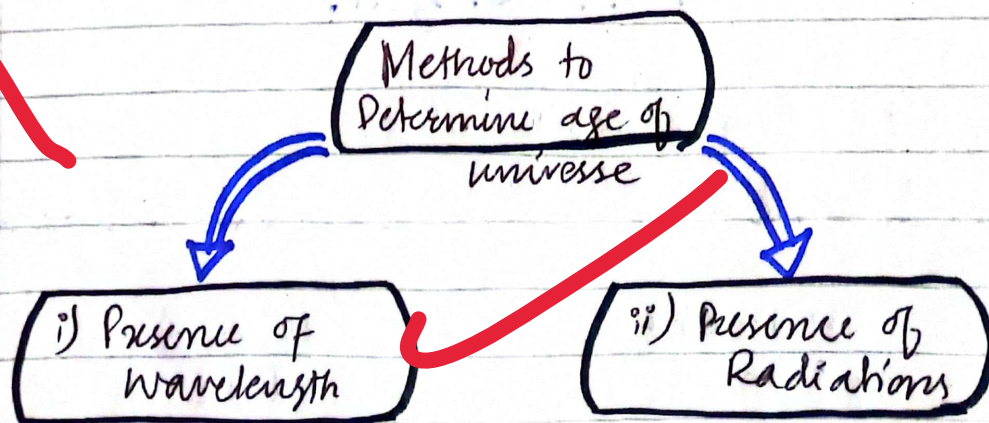 Methods to
Determine age of
universe
i) Presence of
wavelength
ii) Presence of
Radiations